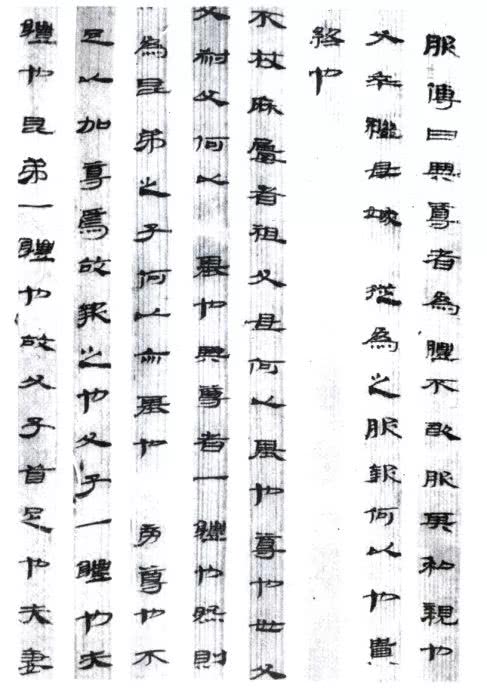 服傳曰與尊者為體不敢服其私親也
父卒繼母嫁 從為之服報何以也貴
終也
不杖麻屨者祖父母何以朞也尊也世父
父叔父何以 朞也與尊者一體也然則
為昆弟之子何以亦朞也 旁尊也不
足以加尊焉故報之也父子一體也夫
體也昆弟一體也故父子首足也夫妻